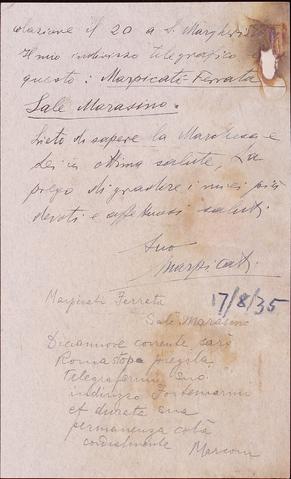 colazione il 20 a S. Margherita
Il mio indirizzo telegrafico è
questo: Marpicati-Ferrata
Sale Marasino.
Lieto di sapere la Marchesa e
Lei in ottima salute, La
prego di gradire i miei più
devoti e affettuosi saluti.
Suo
Marpicati
Marpicati Ferrata
17/8/35
Sale Marasino
Diciannove corrente sarò
Roma stop pregola
telegrafarmi suo
indirizzo
et durata sua
permanenza costà
cordialmente
Marconi